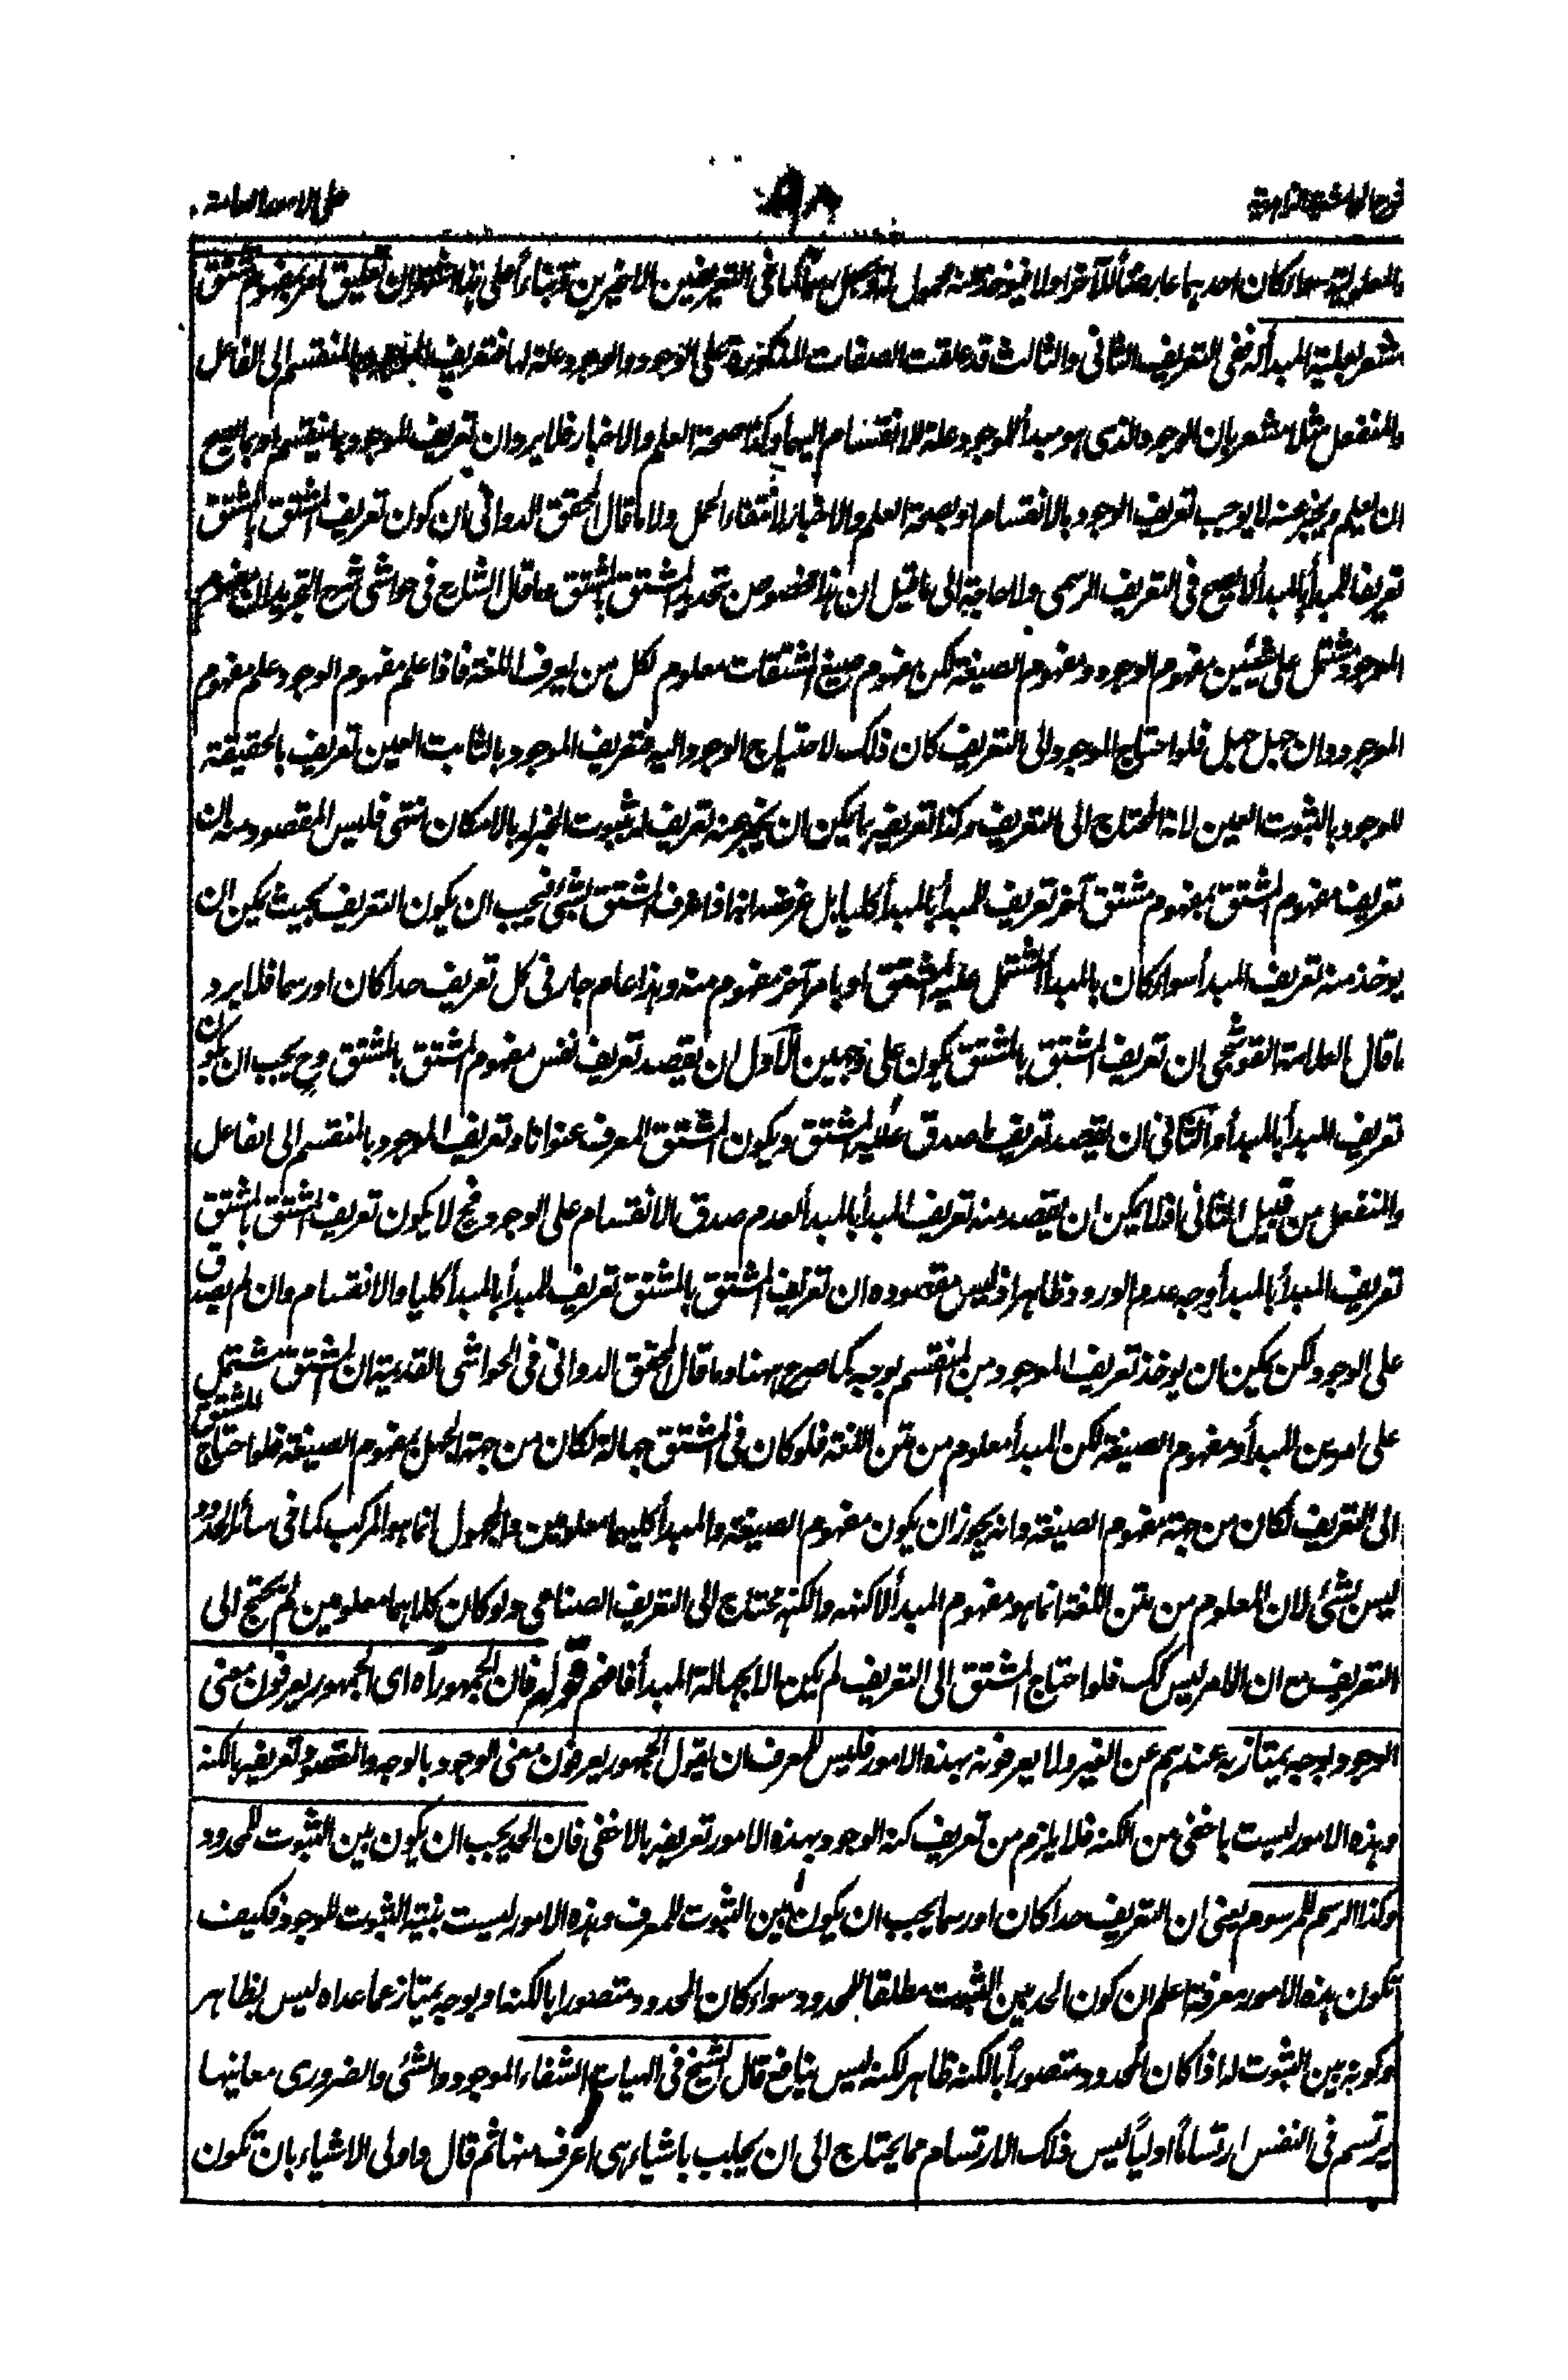 على الامور العامة
والمعلولية سواء كان احدهما عارضا للآخر اولا فيؤخذ منه محمول في التعريفين الاخيرين بناء على ان تعليق امر بمفهوم مشتق
مشعر بعلية المبدأ له ففى التعريف الثانى والثالث قد علقت الصفات المذكورة على الوجود والوجود علة لها فتعريف الموجود بالمنقسم الى الفاعل
والمنفعل مثلا مشعر بان الوجود الذى هو مبدأ الموجود علة للانقسام اليهما وكذا صحة العلم والاخبار فلا يرد ان تعريف الموجود بما ينقسم او بما يصح
ان يعلم ويخبر عنه لا يوجب تعريف الوجود بالانقسام او بصحة العلم والاخبار لانتفاء الحمل ولا ما قال المحقق الدوانى ان كون تعريف المشتق بالمشتق
تعريفا للمبدأ بالمبدأ لا يصح فى التعريف الرسمى ولا حاجة الى ما قيل ان هذا مخصوص بتحديد المشتق بالمشتق وما قال الشارح فى حواشى شرح التجريد لان مفهوم
الموجود مشتمل على شيئين مفهوم الوجود ومفهوم الصيغة لكن مفهوم صيغ المشتقات معلوم لكل من يعرف اللغة فاذا علم مفهوم الوجود علم مفهوم
الموجود وان جهل جهل فلو احتاج الموجود الى التعريف كان ذلك لاحتياج الوجود اليه فتعريف الموجود بالثابت العين تعريف بالحقيقة
للوجود بالثبوت العين لانه المحتاج الى التعريف وكذا تعريفه بما يمكن ان يخبر عنه تعريف له بثبوت الخبر او بالامكان انتهى فليس المقصود منه ان
تعريف مفهوم المشتق بمفهوم مشتق آخر تعريف للمبدأ بالمبدأ كليا بل غرضه انه اذا عرف المشتق بشئ فيجب ان يكون التعريف بحيث يمكن ان
يوخذ منه تعريف المبدأ سواء كان بالمبدأ المشتمل عليه المشتق او بامر آخر مفهوم منه وهذا عام جار فى كل تعريف حدا كان او رسما فلا يرد
ما قال العلامة القوشجى ان تعريف المشتق بالمشتق يكون على وجهين الاول ان يقصد تعريف نفس مفهوم المشتق بالمشتق وح يجب ان يكون
تعريف المبدأ بالمبدأ والثانى ان يقصد تعريف ما صدق عليه المشتق ويكون المشتق المعرف عنوانا وتعريف الموجود بالمنقسم الى الفاعل
والمنفعل من قبيل الثانى اذ لا يمكن ان يقصد منه تعريف المبدأ بالمبدأ لعدم صدق الانقسام على الوجود فح لا يكون تعريف المشتق بالمشتق
تعريف المبدأ بالمبدأ وجه عدم الورود ظاهر اذ ليس مقصوده ان تعريف المشتق بالمشتق تعريف للمبدأ بالمبدأ كليا والانقسام وان لم يصدق
على الوجود لكن يمكن ان يوخذ تعريف الموجود من المنقسم بوجه كما صرح ههنا وما قال المحقق الدوانى فى الحواشى القديمة ان المشتق مشتمل
على امرين المبدأ ومفهوم الصيغة لكن المبدأ معلوم من متن اللغة فلو كان فى المشتق جهالة لكان من جهة الجهل بمفهوم الصيغة فلو احتاج المشتق
الى التعريف لكان من جهة مفهوم الصيغة وانه يجوز ان يكون مفهوم الصيغة والمبدأ كليهما معلومين والمجهول انما هو المركب كما فى سائر الحدود
ليس بشئ لان المعلوم من متن اللغة انما هو مفهوم المبدأ لا كنهه والكنه محتاج الى التعريف الصناعى ولو كان كلاهما معلومين لم يحتج الى
التعريف مع ان الامر ليس كك فلو احتاج المشتق الى التعريف لم يكن الا بجهالة المبدأ فافهم قوله فان الجمهور آه اى الجمهور يعرفون معنى
الوجود بوجه يمتاز به عندهم عن الغير ولا يعرفونه بهذه الامور فليس للمعرف ان يقول الجمهور يعرفون معنى الوجود بالوجه والمقصود تعريفه بالكنه
وهذه الامور ليست باخفى من الكنه فلا يلزم من تعريف كنه الوجود بهذه الامور تعريفه بالاخفى فان الحد يجب ان يكون بين الثبوت للمحدود
وكذا الرسم للمرسوم يعنى ان التعريف حدا كان او رسما يجب ان يكون بين الثبوت للمعرف وهذه الامور ليست بينة الثبوت للوجود فكيف
تكون هذه الامور معرفة اعلم ان كون الحد بين الثبوت مطلقا للمحدود سواء كان المحدود متصورا بالكنه او بوجه يمتاز عما عداه ليس بظاهر
وكونه بين الثبوت له اذا كان المحدود متصوراً بالكنه ظاهر لكنه ليس بنافع قال الشيخ فى الهيات الشفاء الموجود والشئ والضرورى معانيها
يرتسم فى النفس ارتساماً اولياً ليس ذلك الارتسام مما يحتاج الى ان يجلب باشياء هى اعرف منها ثم قال واولى الاشياء بان تكون